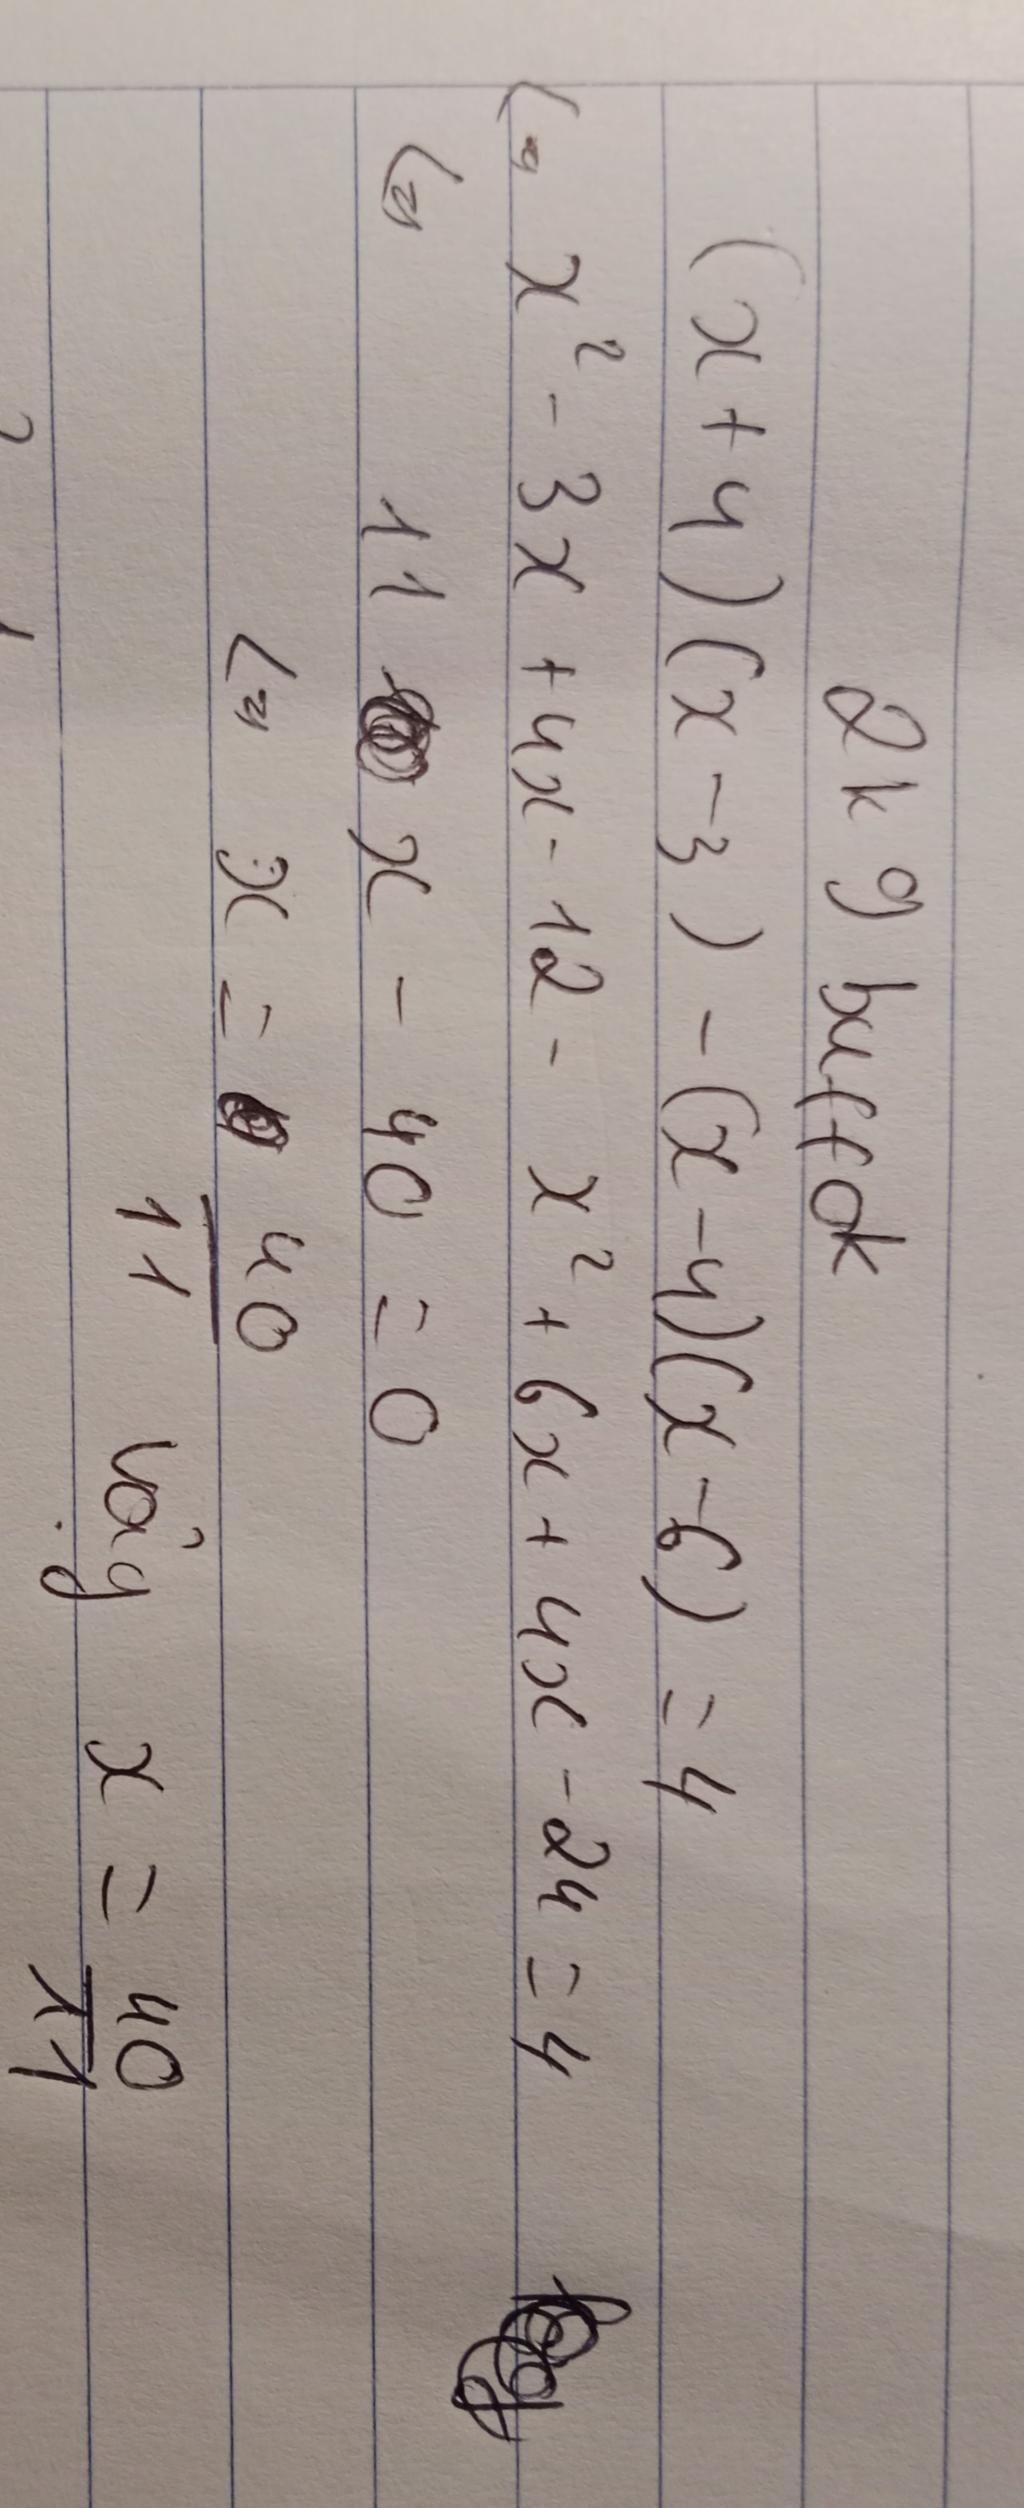 2k9 buffok
(x+4)(x-3)-(x-4)(x-6)=4
x²-3x+4x-12-x²+6x+4x-24=4
11x-40=0
x=40/11
vậy x=40/11